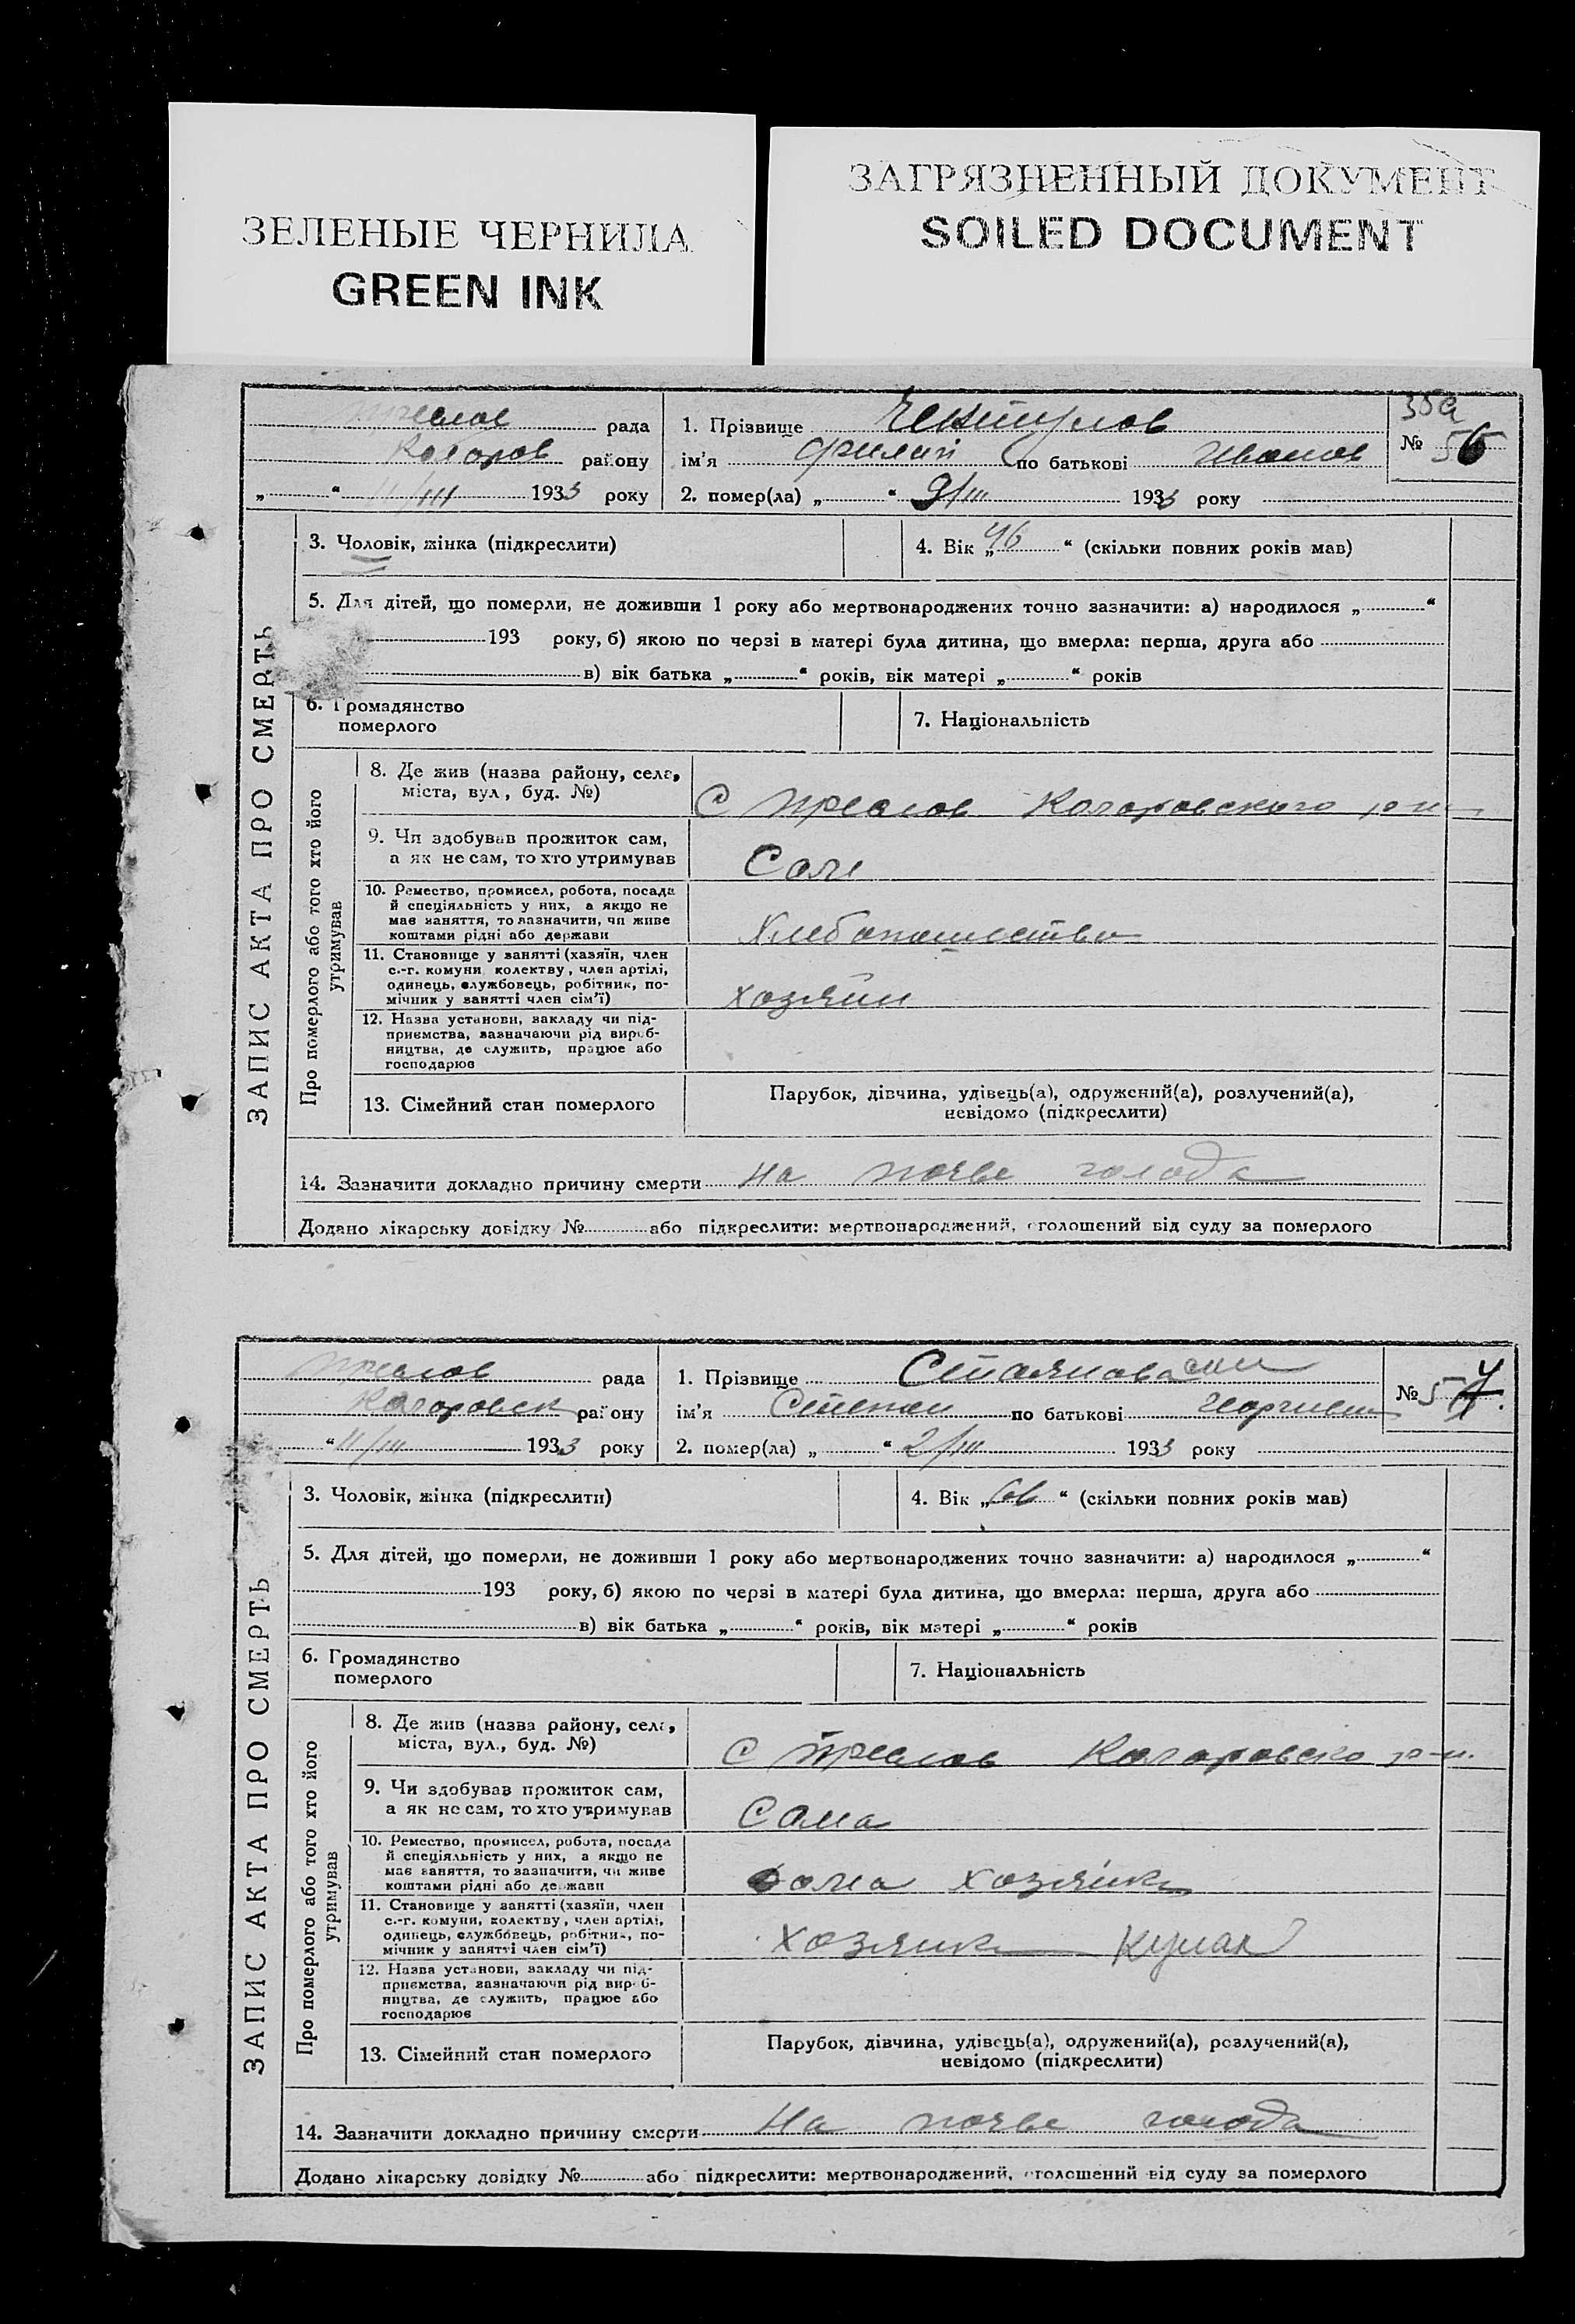 ЗЕЛЕНЫЕ ЧЕРНИЛА
GREEN INK
ЗАГРЯЗНЕННЫЙ ДОКУМЕНТ
SOILED DOCUMENT
35а
№ 56
рада
району
„ “ 11/III 1933 року
1. Прізвище
ім'я по батькові Иванов
2. помер(ла) „ “ 9/III 1933 року
ЗАПИС АКТА ПРО СМЕРТЬ
3. Чоловік, жінка (підкреслити)
4. Вік „46“ (скільки повних років мав)
5. Для дітей, що померли, не доживши 1 року або мертвонароджених точно зазначити: а) народилося „ “
193 року, б) якою по черзі в матері була дитина, що вмерла: перша, друга або
в) вік батька „ “ років, вік матері „ “ років
6. Громадянство
померлого
7. Національність
Про померлого або того хто його
утримував
8. Де жив (назва району, села,
міста, вул., буд. №)
С
9. Чи здобував прожиток сам,
а як не сам, то хто утримував
Сам
10. Ремество, промисел, робота, посада
й спеціяльність у них, а якщо не
має заняття, то зазначити, чи живе
коштами рідні або держави
11. Становище у занятті (хазяїн, член
с.-г. комуни, колектву, член артілі,
одинець, службовець, робітник, по-
мічник у занятті член сім'ї)
хозяин
12. Назва установи, закладу чи під-
приємства, зазначаючи рід вироб-
ництва, де служить, працює або
господарює
13. Сімейний стан померлого
Парубок, дівчина, удівець(а), одружений(а), розлучений(а),
невідомо (підкреслити)
14. Зазначити докладно причину смерти На почве голода
Додано лікарську довідку № або підкреслити: мертвонароджений, оголошений від суду за померлого
№ 57
рада
району
“ 11/III 1933 року
1. Прізвище
ім'я по батькові
2. помер(ла) „ “ 2/III 1933 року
ЗАПИС АКТА ПРО СМЕРТЬ
3. Чоловік, жінка (підкреслити)
4. Вік „ “ (скільки повних років мав)
5. Для дітей, що померли, не доживши 1 року або мертвонароджених точно зазначити: а) народилося „ “
193 року, б) якою по черзі в матері була дитина, що вмерла: перша, друга або
в) вік батька „ “ років, вік матері „ “ років
6. Громадянство
померлого
7. Національність
Про померлого або того хто його
утримував
8. Де жив (назва району, села,
міста, вул., буд. №)
С
9. Чи здобував прожиток сам,
а як не сам, то хто утримував
Сама
10. Ремество, промисел, робота, посада
й спеціяльність у них, а якщо не
має заняття, то зазначити, чи живе
коштами рідні або держави
дома хозяйка
11. Становище у занятті (хазяїн, член
с.-г. комуни, колектву, член артілі,
одинець, службовець, робітник, по-
мічник у занятті член сім'ї)
хозяйка Кулак
12. Назва установи, закладу чи під-
приємства, зазначаючи рід вироб-
ництва, де служить, працює або
господарює
13. Сімейний стан померлого
Парубок, дівчина, удівець(а), одружений(а), розлучений(а),
невідомо (підкреслити)
14. Зазначити докладно причину смерти На почве голода
Додано лікарську довідку № або підкреслити: мертвонароджений, оголошений від суду за померлого